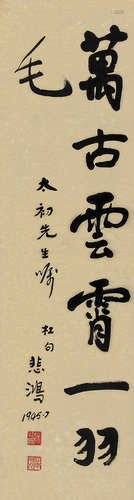 萬古雲霄一羽
毛
太初先生囑
杜句
悲鴻
1945.7